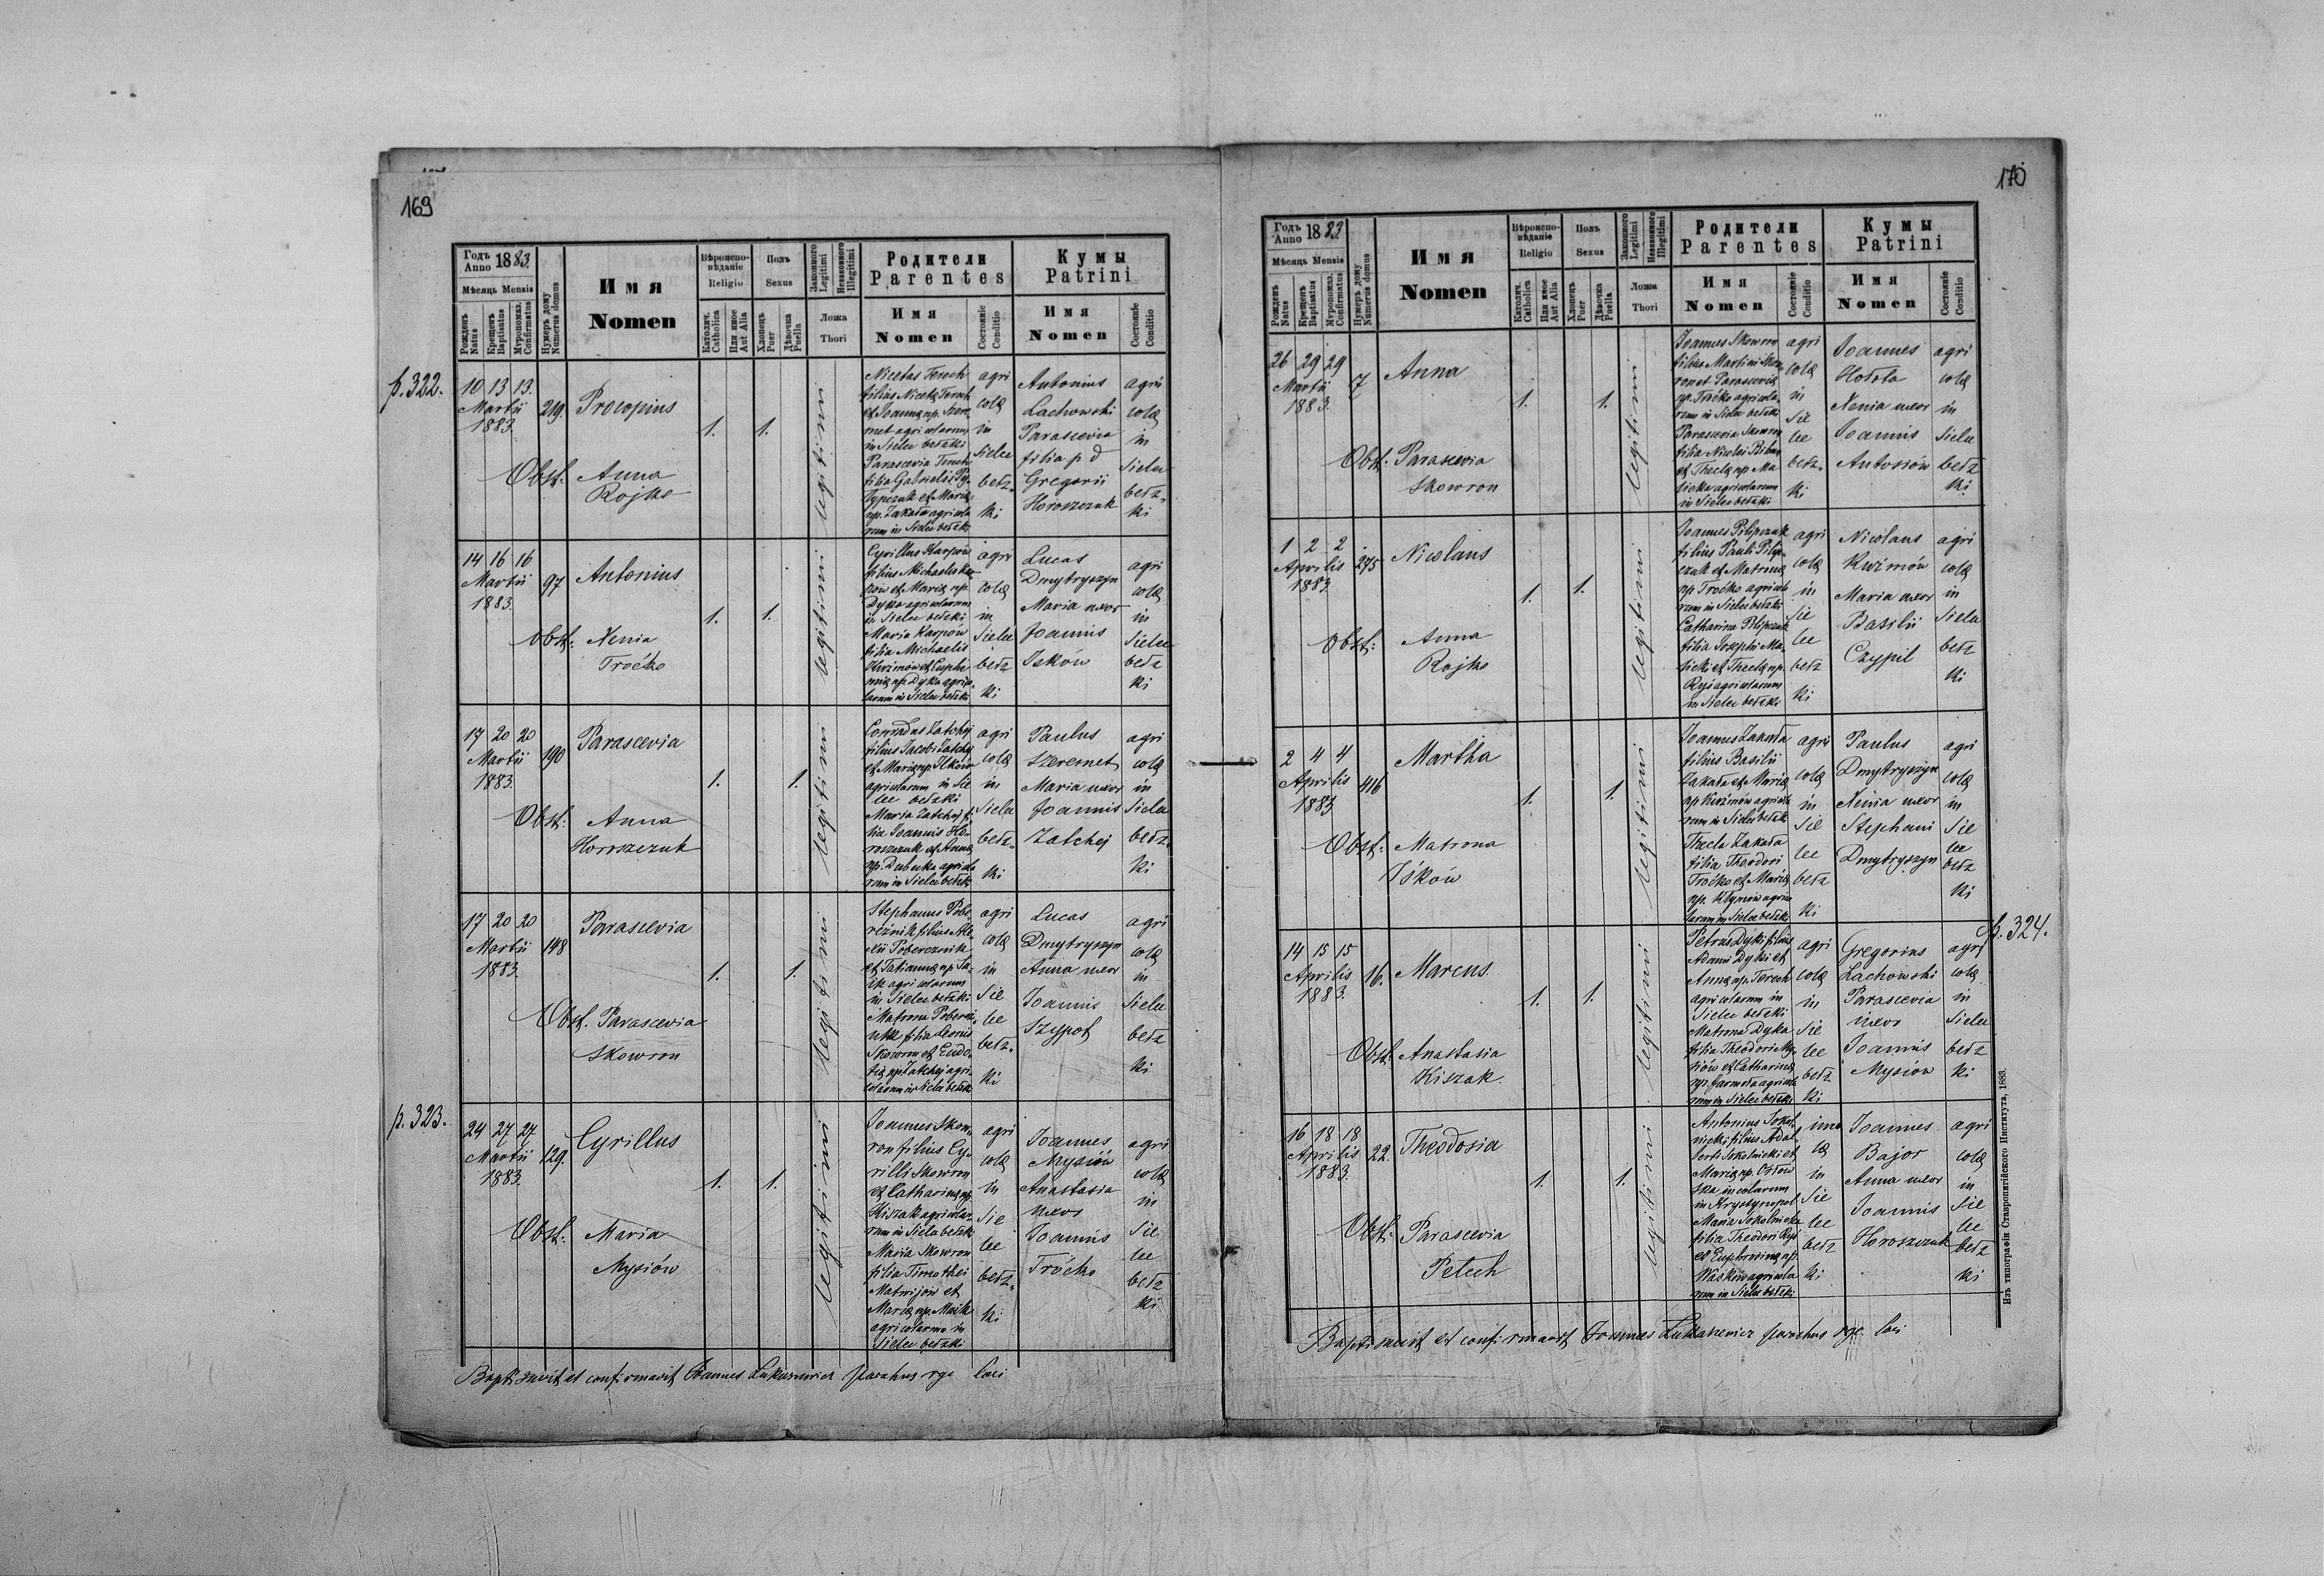 169
Годъ Anno 1883.
Мѣсяцъ Mensis
Рожденъ Natus
Крещенъ Baptisatus
Муропомаз. Confirmatus
Нумеръ дому Numerus domus
Имя
Nomen
Вѣроиспо-
вѣданіе
Religio
Католич. Catholica
Или иное Aut Alia
Полъ
Sexus
Хлопецъ Puer
Дѣвочка Puella
Законного Legitimi
Незаконного Illegitimi
Ложа
Thori
Родители
Parentes
Имя
Nomen
Состояніе Conditio
Кумы
Patrini
Имя
Nomen
Состояніе Conditio
p. 322.
10 13 13.
Martii
1883.
219.
Procopius
1.
1.
Obst: Anna
Rojko
legitimi
Nicetas Terech
filius Nicetæ Terech
et Joannæ np. Szere-
met agricolarum
in Sielec bełzki
Parascevia Terech
filia Gabrielis
et Mariæ
np. Zakała agricola
rum in Sielec bełzki
agri
colæ
in
Sielec
bełz-
ki
Antonius
Lachowski
Parascevia
filia p d
Gregorii
Horoszczuk
agri
colæ
in
Sielec
bełz-
ki
14 16 16
Martii
1883.
97
Antonius
1.
1.
Obst: Xenia
Troćko
legitimi
Cyrillus Karpów
filius Michaelis Kar-
pów et Mariæ np.
Dyka agricolarum
in Sielec bełzki
Maria Karpów
filia Michaelis
Kuźmów et Euphe-
miæ np. Dyka agrico-
larum in Sielec bełzki
agri
colæ
in
Sielec
bełz
ki
Lucas
Dmytryszyn
Maria uxor
Joannis
Iśków
agri
colæ
in
Sielec
bełz
ki
17 20 20
Martii
1883.
190
Parascevia
1.
1.
Obst: Anna
Horoszczuk
legitimi
Conradus Zatchej
filius Jacobi Zatchej
et Mariæ np. Ilków
agricolarum in Sie
lec bełzki
Maria Zatchej fi-
lia Joannis Ho-
roszczuk et Annæ
np. Dubecka agricola
rum in Sielec bełzki
agri
colæ
in
Sielec
bełz-
ki
Paulus
Szeremet
Maria uxor
Joannis
Zatchej
agri
colæ
in
Sielec
bełz-
ki
17 20 20
Martii
1883.
148
Parascevia
1.
1.
Obst. Parascevia
Skowron
legitimi
Stephanus Pobe-
reżnik filius Ale-
xii Pobereżnik
et Tatiannæ np.
agricolarum
in Sielec bełzki
Matrona Pobereż-
nik filia Leonis
Skowron et Eudo-
kiæ np Zatchej agri-
colarum in Sielec bełzki
agri
colæ
in
Sie
lec
bełz-
ki
Lucas
Dmytryszyn
Anna uxor
Joannis
Szypot
agri
colæ
in
Sielec
bełz
ki
p. 323.
24 27 27
Martii
1883.
129.
Cyrillus
1.
1.
Obst: Maria
Mysiów
legitimi
Joannes Skow-
ron filius Cy-
rilli Skowron
et Catharinæ np.
Kiszak agricola-
rum in Sielec bełzki
Maria Skowron
filia Timothei
Matwijów et
Mariæ np.
agricolarum in
Sielec bełzki
agri
colæ
in
Sie
lec
bełz-
ki
Joannes
Mysiów
Anastasia
uxor
Joannis
Troćko
agri
colæ
in
Sie
lec
bełz
ki
Baptisavit et confirmavit Joannes Lukasiewicz parochus rgc loci
170
Годъ Anno 1883.
Мѣсяцъ Mensis
Рожденъ Natus
Крещенъ Baptisatus
Муропомаз. Confirmatus
Нумеръ дому Numerus domus
Имя
Nomen
Вѣроиспо-
вѣданіе
Religio
Католич. Catholica
Или иное Aut Alia
Полъ
Sexus
Хлопецъ Puer
Дѣвочка Puella
Законного Legitimi
Незаконного Illegitimi
Ложа
Thori
Родители
Parentes
Имя
Nomen
Состояніе Conditio
Кумы
Patrini
Имя
Nomen
Состояніе Conditio
26 29 29
Martii
1883.
7
Anna
1.
1.
Obst: Parascevia
Skowron
legitimi
Joannes Skowron
filius Martini Skow-
ron et Parasceviæ
np. Troćko agricola-
rum in Sielec bełzki
Parascevia Skowron
filia Nicolai
et Theclæ np Ma
sicka agricolarum
in Sielec bełzki
agri
colæ
in
Sie
lec
bełz-
ki
Joannes
Hołota
Xenia uxor
Joannis
Antosiów
agri
colæ
in
Sielec
bełz
ki
1 2 2
Aprilis
1883.
275
Nicolaus
1.
1.
Obst: Anna
Rojko
legitimi
Joannes Pilipczuk
filius Pauli Pilip-
czuk et Matronæ
np Troćko agricola
rum in Sielec bełzki
Catharina Pilipczuk
filia Josephi Ma-
sicki et Theclæ np.
Ryś agricolarum
in Sielec bełzki
agri
colæ
in
Sie
lec
bełz
ki
Nicolaus
Kuźmów
Maria uxor
Basilii
Czypil
agri
colæ
in
Sielec
bełz
ki
2 4 4
Aprilis
1883
416
Martha
1.
1.
Obst: Matrona
Iśków
legitimi
Joannes Zakała
filius Basilii
Zakała et Mariæ
np Kuźmów agricola
rum in Sielec bełzki
Thecla Zakała
filia Theodori
Troćko et Mariæ
np. Klymów agrico
larum in Sielec bełzki
agri
colæ
in
Sie
lec
bełz
ki
Paulus
Dmytryszyn
Xenia uxor
Stephani
Dmytryszyn
agri
colæ
in
Sie
lec
bełz
ki
p. 324.
14 15 15
Aprilis
1883.
16.
Marcus.
1.
1.
Obst: Anastasia
Kiszak.
legitimi
Petrus Dyki filius
Adami Dyki et
Annæ np. Terech
agricolarum in
Sielec bełzki
Matrona Dyka
filia Theodori My-
siów et Catharinæ
np. Jarmoła agricola
rum in Sielec bełzki
agri
colæ
in
Sie
lec
bełz
ki
Gregorius
Lachowski
Parascevia
uxor
Joannis
Mysiów
agri
colæ
in
Sielec
bełz
ki
16 18 18
Aprilis
1883.
22.
Theodosia
1.
1.
Obst: Parascevia
Petech
legitimi
Antonius Sokol-
nicki filius Adal-
berti Sokolnicki et
Mariæ np. Ostow
ska incolarum
in Krystynopol
Maria Sokolnicka
filia Theodori Ryś
et Euphrosinæ np.
Waśków agricola
rum in Sielec bełzki
inco
læ
in
Sie
lec
bełz
ki
Joannes
Bajor
Anna uxor
Joannis
Horoszczuk
agri
colæ
in
Sie
lec
bełz
ki
Baptisavit et confirmavit Joannes Lukasiewicz parochus rgc loci
Изъ типографіи Ставропигійского Института, 1883.